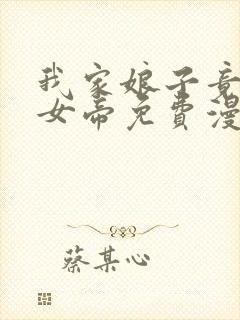 我家娘子竟
女帝免费漫
蔡某心